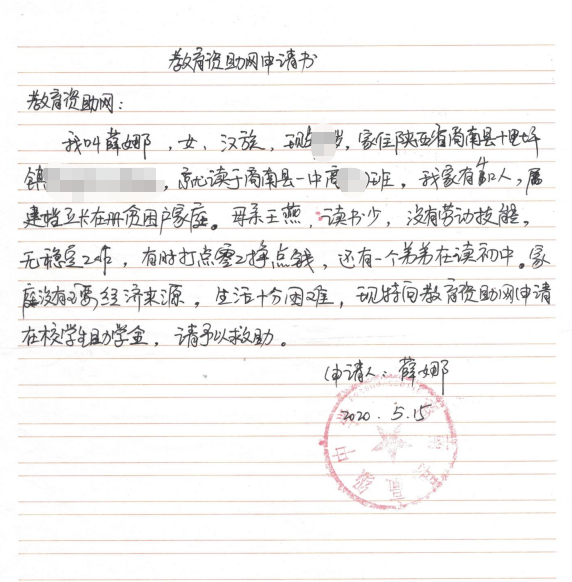 教育资助网申请书
教育资助网：
我叫薛娜，女，汉族，现年 岁，家住陕西省商南县十里坪
镇 ，就读于商南县一中高 班，我家有 口人，属
建档立卡在册贫困户家庭。母亲王燕，读书少，没有劳动技能，
无稳定工作，有时打点零工挣点钱，还有一个弟弟在读初中。家
庭没有主要经济来源，生活十分困难，现特向教育资助网申请
在校学生助学金，请予以救助。
申请人：薛娜
2020.5.15